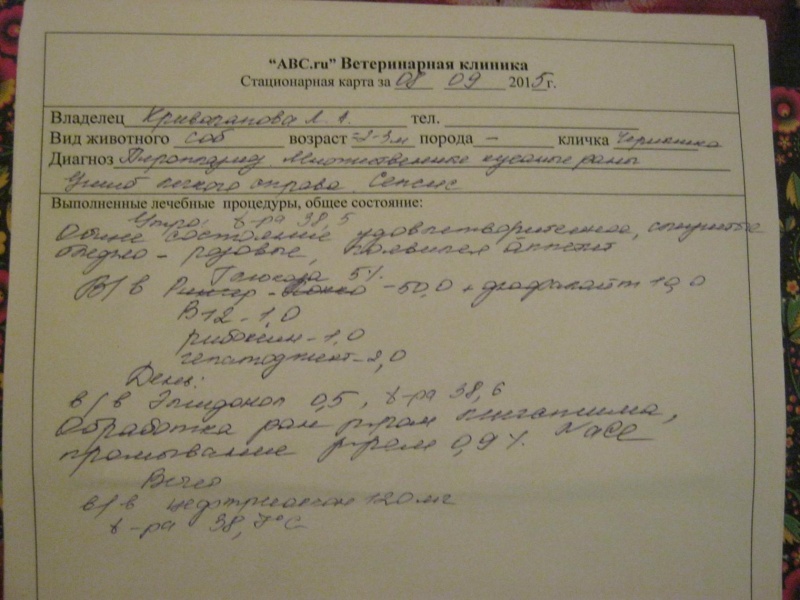 “ABC.ru” Ветеринарная клиника
Стационарная карта за 08 09 2015 г.
Владелец А. тел.
Вид животного соб возраст ≈2-3м порода – кличка Чернышка
Диагноз Множественные кусаные раны
Ушиб легкого справа. Сепсис
Выполненные лечебные процедуры, общее состояние:
Утро: t-ра 38,5
Общее состояние удовлетворительное, слизистые
бледно-розовые, появился аппетит
Глюкоза 5%
В/в Рингер-Локка -50,0 + 10,0
В12-1,0
рибоксин-1,0
гепатоджект-2,0
День:
в/в 0,5, t-ра 38,6
Обработка ран р-ром
промывание р-ром 0,9% NaCl
Вечер
в/в цефтриаксон 120мг
t-ра 38,7°С